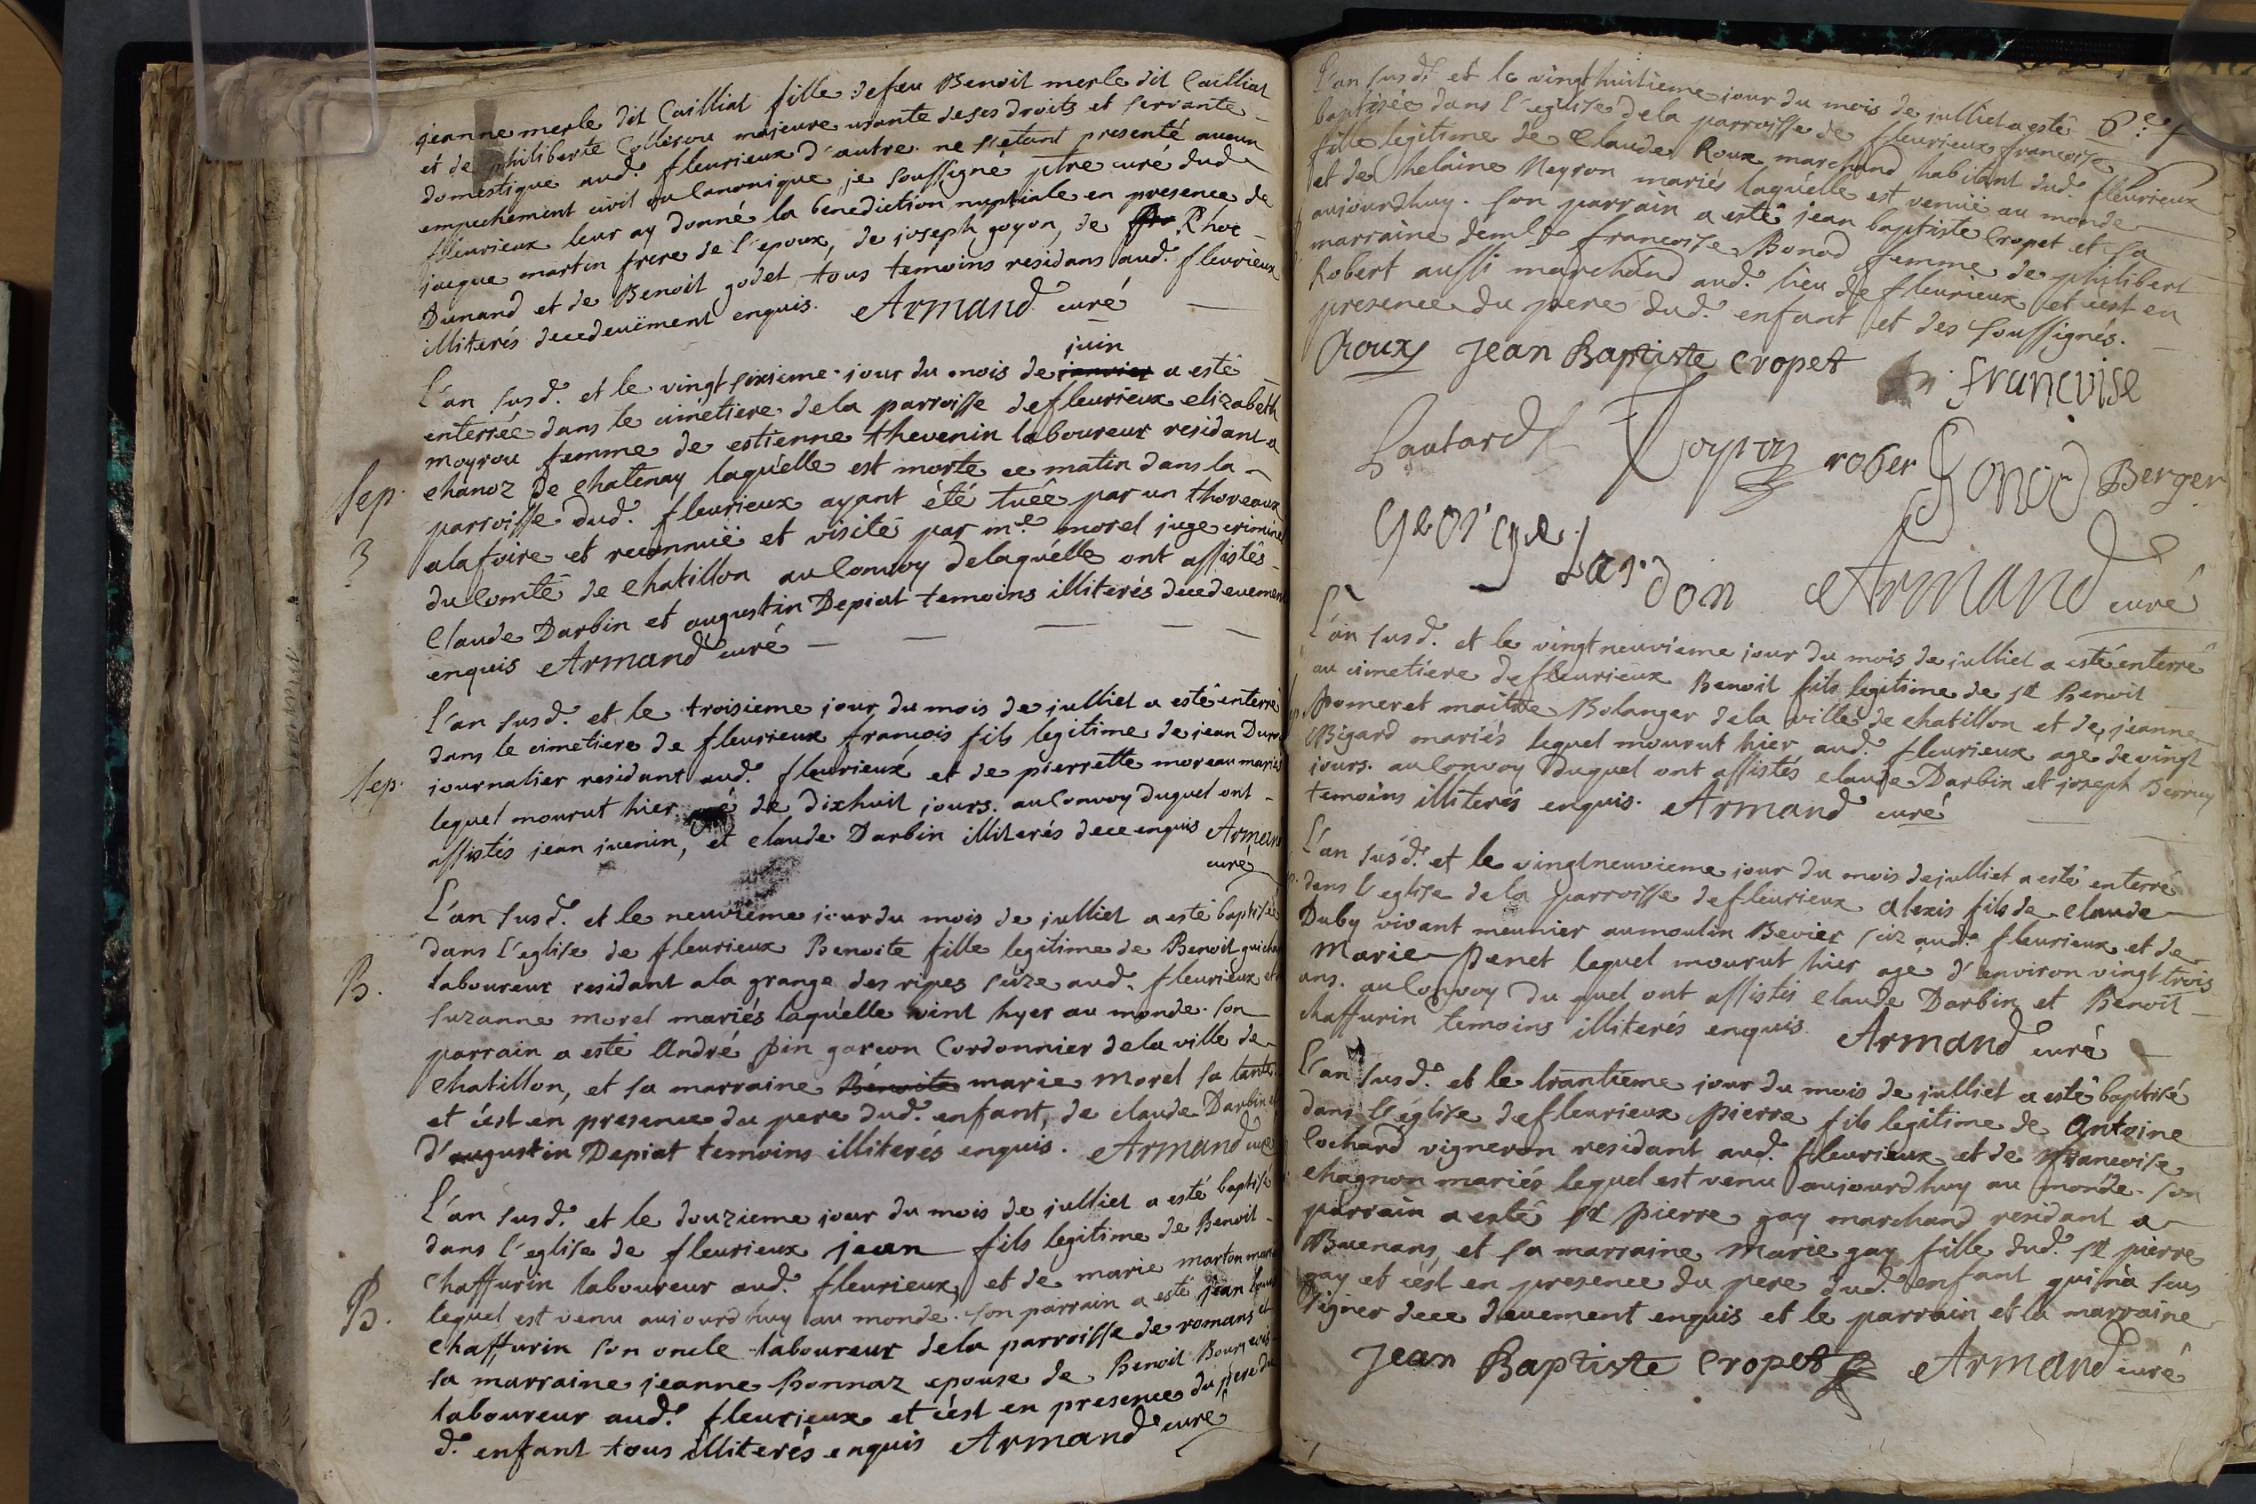 jeanne merle dit Cailliat fille defeu Benoit merle dit Cailliat
et de philiberte Collerou majeure usante deses droits et servante
domestique aud. fleurieux d'autre. ne s'etant presenté aucun
empechement civil ou Canonique je soussigné ptre curé dud.
fleurieux leur ay donné la bénédiction nuptiale en presence de
jacque martin frere de l'epoux, de joseph goyon, de Phoc
Dunand et de Benoit godet tous temoins residans aud. fleurieux
illiterés decedeuïment enquis. Armand curé
juin
L'an susd. et le vingt sixieme jour du mois de janvier a esté
enterrée dans le cimetiere dela parroisse defleurieux elizabeth
moyrou femme de estienne thevenin laboureur residant a
Sep. chanoz de chatenay laquélle est morte ce matin dans la
parroisse dud. fleurieux ayant été tuée par un thoreaux
3 alafoire et reconnuë et visité par me. morel juge criminel
du Comté de chatillon au Convoy delaquélle ont assistés
Claude Darbin et augustin Depiat temoins illiterés decedeuement
enquis Armand curé
L'an susd. et le troisieme jour du mois de julliet a esté enterré
dans le cimetiere de fleurieux francois fils legitime de jean
Sep. journalier residant aud. fleurieux et de pierrette moreau mariés
lequel mourut hier agé de dixhuit jours. au Convoy duquel ont
assistés jean juenin, et claude Darbin illiterés dece enquis Armand
curé
L'an susd. et le neuvieme jour du mois de julliet a esté baptisée
dans l'eglise de fleurieux Benoite fille legitime de Benoit
B. laboureur residant ala grange des ripes size aud. fleurieux et
suzanne morel mariés laquélle vint hyer au monde. son
parrain a esté André pin garcon Cordonnier dela ville de
chatillon, et sa marraine Bénoite marie morel sa tante
et c'est en presence du pere dud. enfant, de claude Darbin et
d'augustin Depiat temoins illiterés enquis. Armand curé
L'an susd. et le douzieme jour du mois de julliet a esté baptisé
dans l'eglise de fleurieux jean fils legitime de Benoit
chaffurin laboureur aud. fleurieux et de marie marton
B. lequel est venu aujourdhuy au monde. son parrain a esté jean
chaffurin son oncle laboureur dela parroisse de romans et
sa marraine jeanne Bonnaz epouse de Benoit
laboureur aud. fleurieux et c'est en presence du pere du
d. enfant tous illiterés enquis Armand curé
L'an susd. et le vingthuitieme jour du mois de julliet a esté
baptisée dans l'eglise dela parroisse de fleurieux francoise
fille legitime de Claude Roux marchand habitant dud. fleurieux
et de helaine Neyron mariés laquélle est venuë au monde
aujourdhuy. son parrain a esté jean baptiste Cropet et sa
marraine demlle francoise Bonod femme de philibert
Robert aussi marchand aud. lieu de fleurieux et c'est en
presence du pere dud. enfant et des soussignés.
Roux jean Baptiste Cropet francoise
Lautard rober Bonod Berger
George Lardon Armand curé
L'an susd. et le vingtneuvieme jour du mois de julliet a esté enterré
au cimetiere defleurieux Benoit fils legitime de sr Benoit
pomeret maitre Bolanger dela ville de chatillon et de jeanne
Bigard mariés lequel mourut hier aud. fleurieux age de vingt
jours. au Convoy duquel ont assistés claude Darbin et joseph
temoins illiterés enquis. Armand curé
L'an susd. et le vingtneuvieme jour du mois dejulliet a esté enterré
dans l'eglise dela parroisse defleurieux alexis fils de claude
Duby vivant meunier aumoulin Bevier siz aud. fleurieux et de
Marie penet lequel mourut hier agé d'environ vingt trois
ans. au Convoy du quel ont assistés claude Darbin et Benoit
chaffurin temoins illiterés enquis. Armand curé
L'an susd. et le trantieme jour du mois de julliet a esté baptisé
dans l'église defleurieux pierre fils legitime de Antoine
Cochard vigneron residant aud. fleurieux et de francoise
chagnon mariés lequel est venu aujourdhuy au monde. son
parrain a esté sr pierre gay marchand residant a
Baenans, et sa marraine marie gay fille dud. sr pierre
gay et c'est en presence du pere dud. enfant qui n'a sçus
signer dece duement enquis et le parrain et la marraine
jean Baptiste Cropet Armand curé